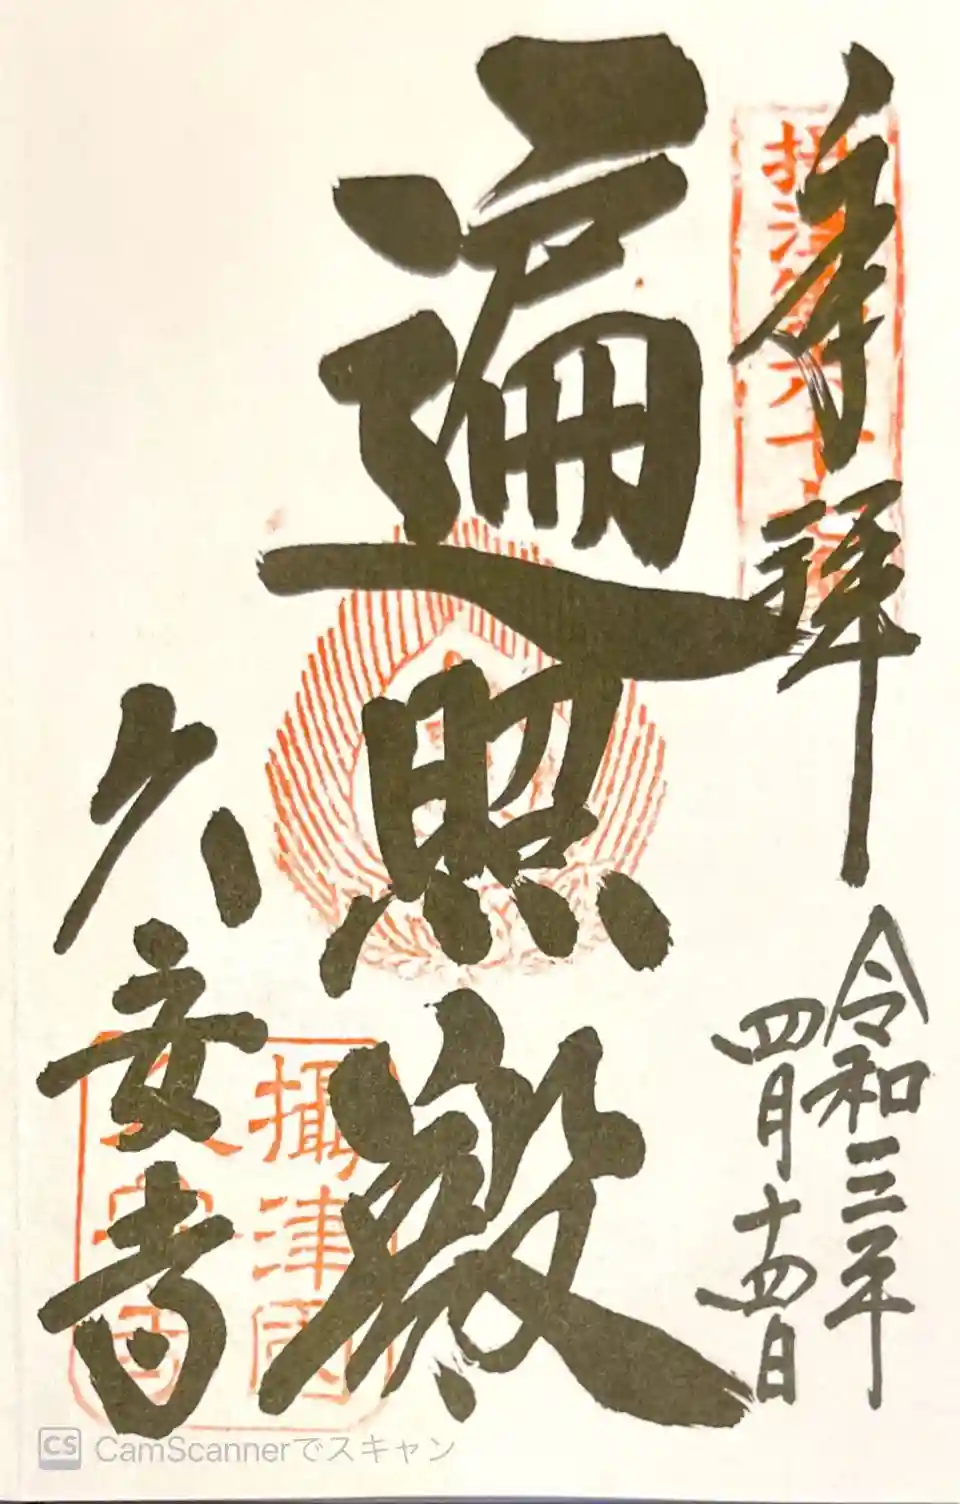 奉拝
令和三年
四月十四日
遍照殿
久安寺
攝津國
CamScannerでスキャン